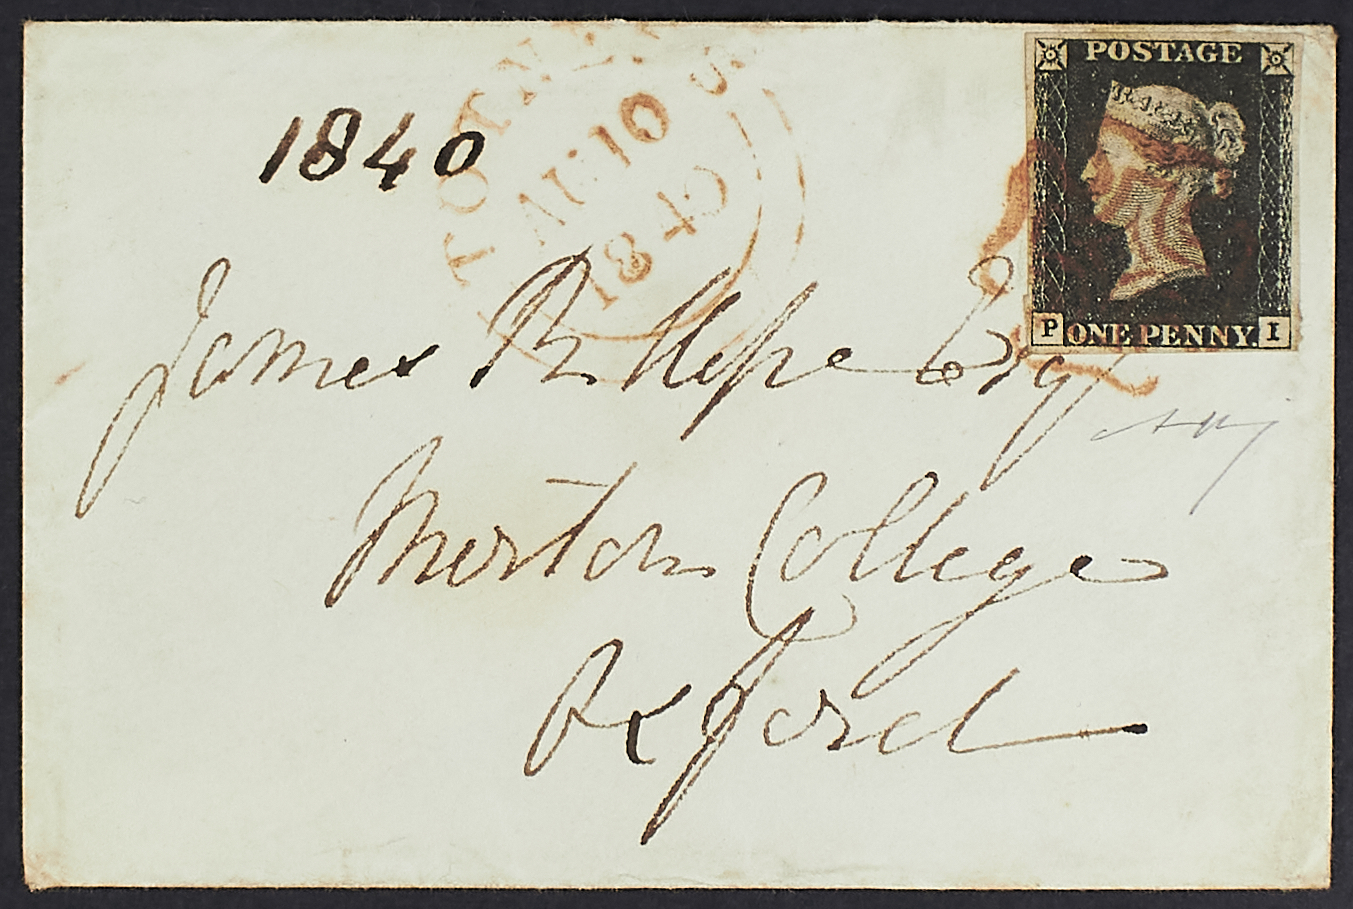 POSTAGE
ONE PENNY.
P I
TOTNES
AU 10
1840
1840
James R. Hope Esq
Merton College
Oxford